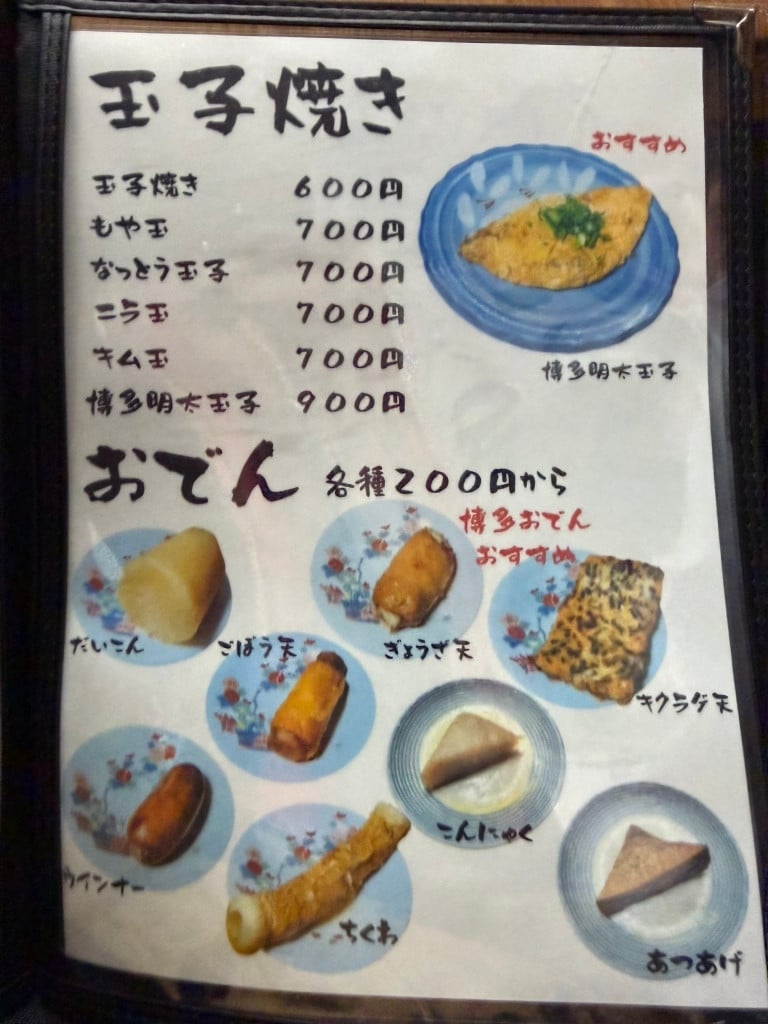 玉子焼き
おすすめ
玉子焼き 600円
もや玉 700円
なっとう玉子 700円
ニラ玉 700円
キム玉 700円
博多明太玉子 900円
博多明太玉子
おでん 各種200円から
博多おでん
おすすめ
だいこん
ごぼう天
ぎょうざ天
キクラゲ天
ウインナー
ちくわ
こんにゃく
あつあげ